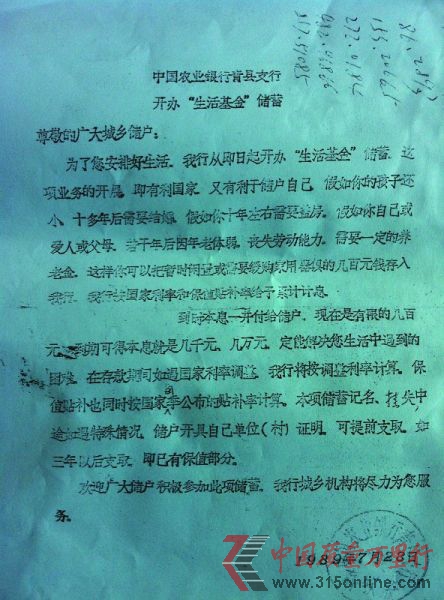 中国农业银行青县支行
开办“生活基金”储蓄
尊敬的广大城乡储户：
为了您安排好生活，我行从即日起开办“生活基金”储蓄。这
项业务的开展，即有利国家，又有利于储户自己。假如你的孩子还
小，十多年后需要结婚，假如你十年左右需要盖房。假如你自己或
爱人或父母，若干年后因年老体弱，丧失劳动能力，需要一定的养
老金。这样你可以把暂时闲置或需要缓购家用器俱的几百元钱存入
我行，我行按国家利率和保值贴补率给予累计计息。
到时本息一并付给储户，现在是有限的几百
元，到期可得本息就是几千元、几万元，定能解决您生活中遇到的
困难。在存款期间如遇国家利率调整，我行将按调整利率计算。保
值贴补也同时按国家季公布的贴补率计算。本项储蓄记名、挂失中
途如遇特殊情况，储户开具自己单位（村）证明，可提前支取。如
三年以后支取，即已有保值部分。
欢迎广大储户积极参加此项储蓄。我行城乡机构将尽力为您服
务。
1989年7月28日
中国质量万里行
www.315online.com